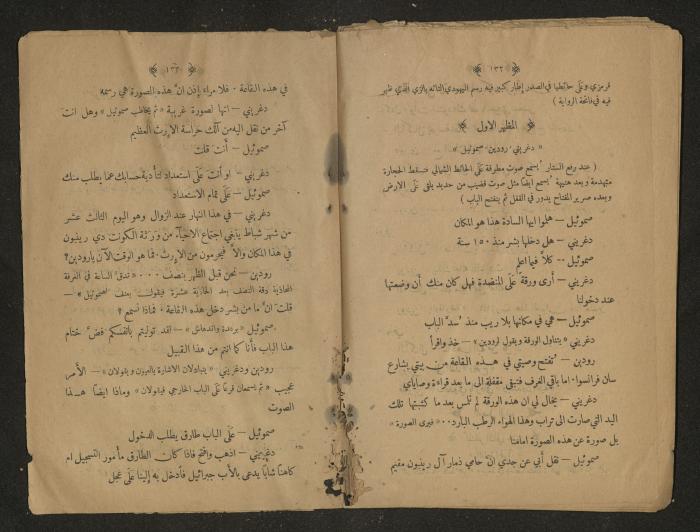 ١٣٢
قرمزي وعلى حائطها في الصدر إطار كبير فيه رسم اليهودي التائه بالزي الذي ظهر
فيه في فاتحة الرواية )
المظهر الاول
« دغريني رودين صموئيل »
( عند رفع الستار يُسمع صوت مطرقة على الحائط الشمالي فتسقط الحجارة
متهدمة وبعد هنيهة يُسمع ايضاً مثل صوت قضيب من حديد يلقى على الارض
وبعده صرير المفتاح يدور في القفل ثم ينفتح الباب )
صموئيل — هلموا ايها السادة هذا هو المكان
دغريني — هل دخلها بشر منذ ١٥٠ سنة
صموئيل — كلاَّ فيما اعلم
دغريني — أرى ورقة على المنضدة فهل كان منك أن وضعتها
عند دخولنا
صموئيل — هي في مكانها بلا ريب منذ سُدَّ الباب
دغريني « يتناول الورقة ويقول لرودين » — خذ واقرأ
رودين — تنفتح وصيتي في هذه القاعة من بيتي بشارع
سان فرانسوا. اما باقي الغرف فتبقى مقفلة الى ما بعد قراءة وصاياي
دغريني — يخال لي ان هذه الورقة لم تُلمس بعد ما كتبتها تلك
اليد التي صارت الى تراب وهذا الهواء الرطب البارد... « فيرى الصورة »
بل صورة عن هذه الصورة امامنا
صموئيل — نقل أبي عن جدي انَّ حامي ذمار آل رينبون مقيم
١٣٣
في هذه القاعة. فلا مراء إذن انَّ هذه الصورة هي رسمه
دغريني — انها لصورة غريبة « ثم يخاطب صموئيل » وهل انت
آخر من نقل اليه من آلك حراسة الإرث العظيم
صموئيل — أنت قلت
دغريني — او أنت على استعداد لتأدية حسابك عما يطلب منك
صموئيل — على تمام الاستعداد
دغريني — في هذا النهار عند الزوال وهو اليوم الثالث عشر
من شهر شباط ينبغي اجتماع الاحياء من ورثة الكونت دي رينبون
في هذا المكان والاَّ فيحرمون من الإرث. فما هو الوقت الآن يا رودين؟
رودين — نحن قبيل الظهر بنصف... « تدق الساعة في الغرفة
المحاذية دقة النصف بعد الحادية عشرة فيقول بعنف لصموئيل » —
قلت انَّ ما من بشر دخل هذه القاعة. فماذا نسمع؟
صموئيل « برعدة واندهاش » — لقد توليتم بانفسكم فضَّ ختام
هذا الباب فأنا كما انتم من هذا القبيل
رودين ودغريني « يتبادلان الاشارة بالعيون ويقولان » — الأمر
عجيب « ثم يسمعان قرعاً على الباب الخارجي فيقولان » وماذا ايضاً هذا
الصوت
صموئيل — على الباب طارق يطلب الدخول
دغريني — اذهب وافتح فاذا كان الطارق مأمور التسجيل ام
كاهناً شاباً يدعى بالأب جبرائيل فأدخل به إلينا على عجل